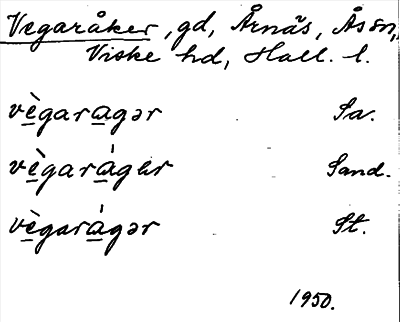 Vegaråker, gd, Årnäs, Ås sn,
Viske hd, Hall. l.
vègaragər Sa.
vègarágər Sand.
vègarágər St.
1950.